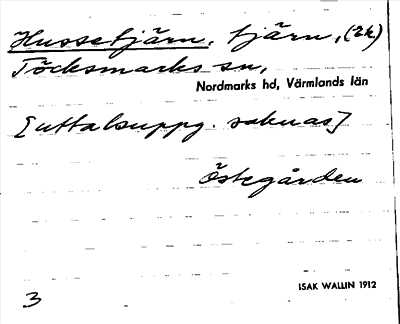 Hussetjärn, tjärn, (2k)
Töcksmarks sn,
Nordmarks hd, Värmlands län
[uttalsuppg. saknas]
Östegården
ISAK WALLIN 1912
3